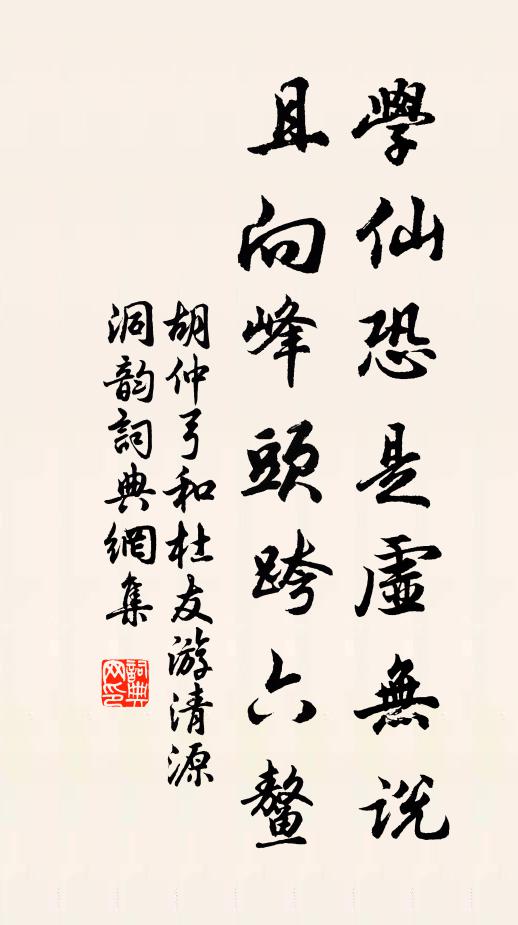 學仙恐是虛無説
且向峰頭跨六鰲
胡仲弓和杜友游清源
洞韵詞典網集
詞典
网印